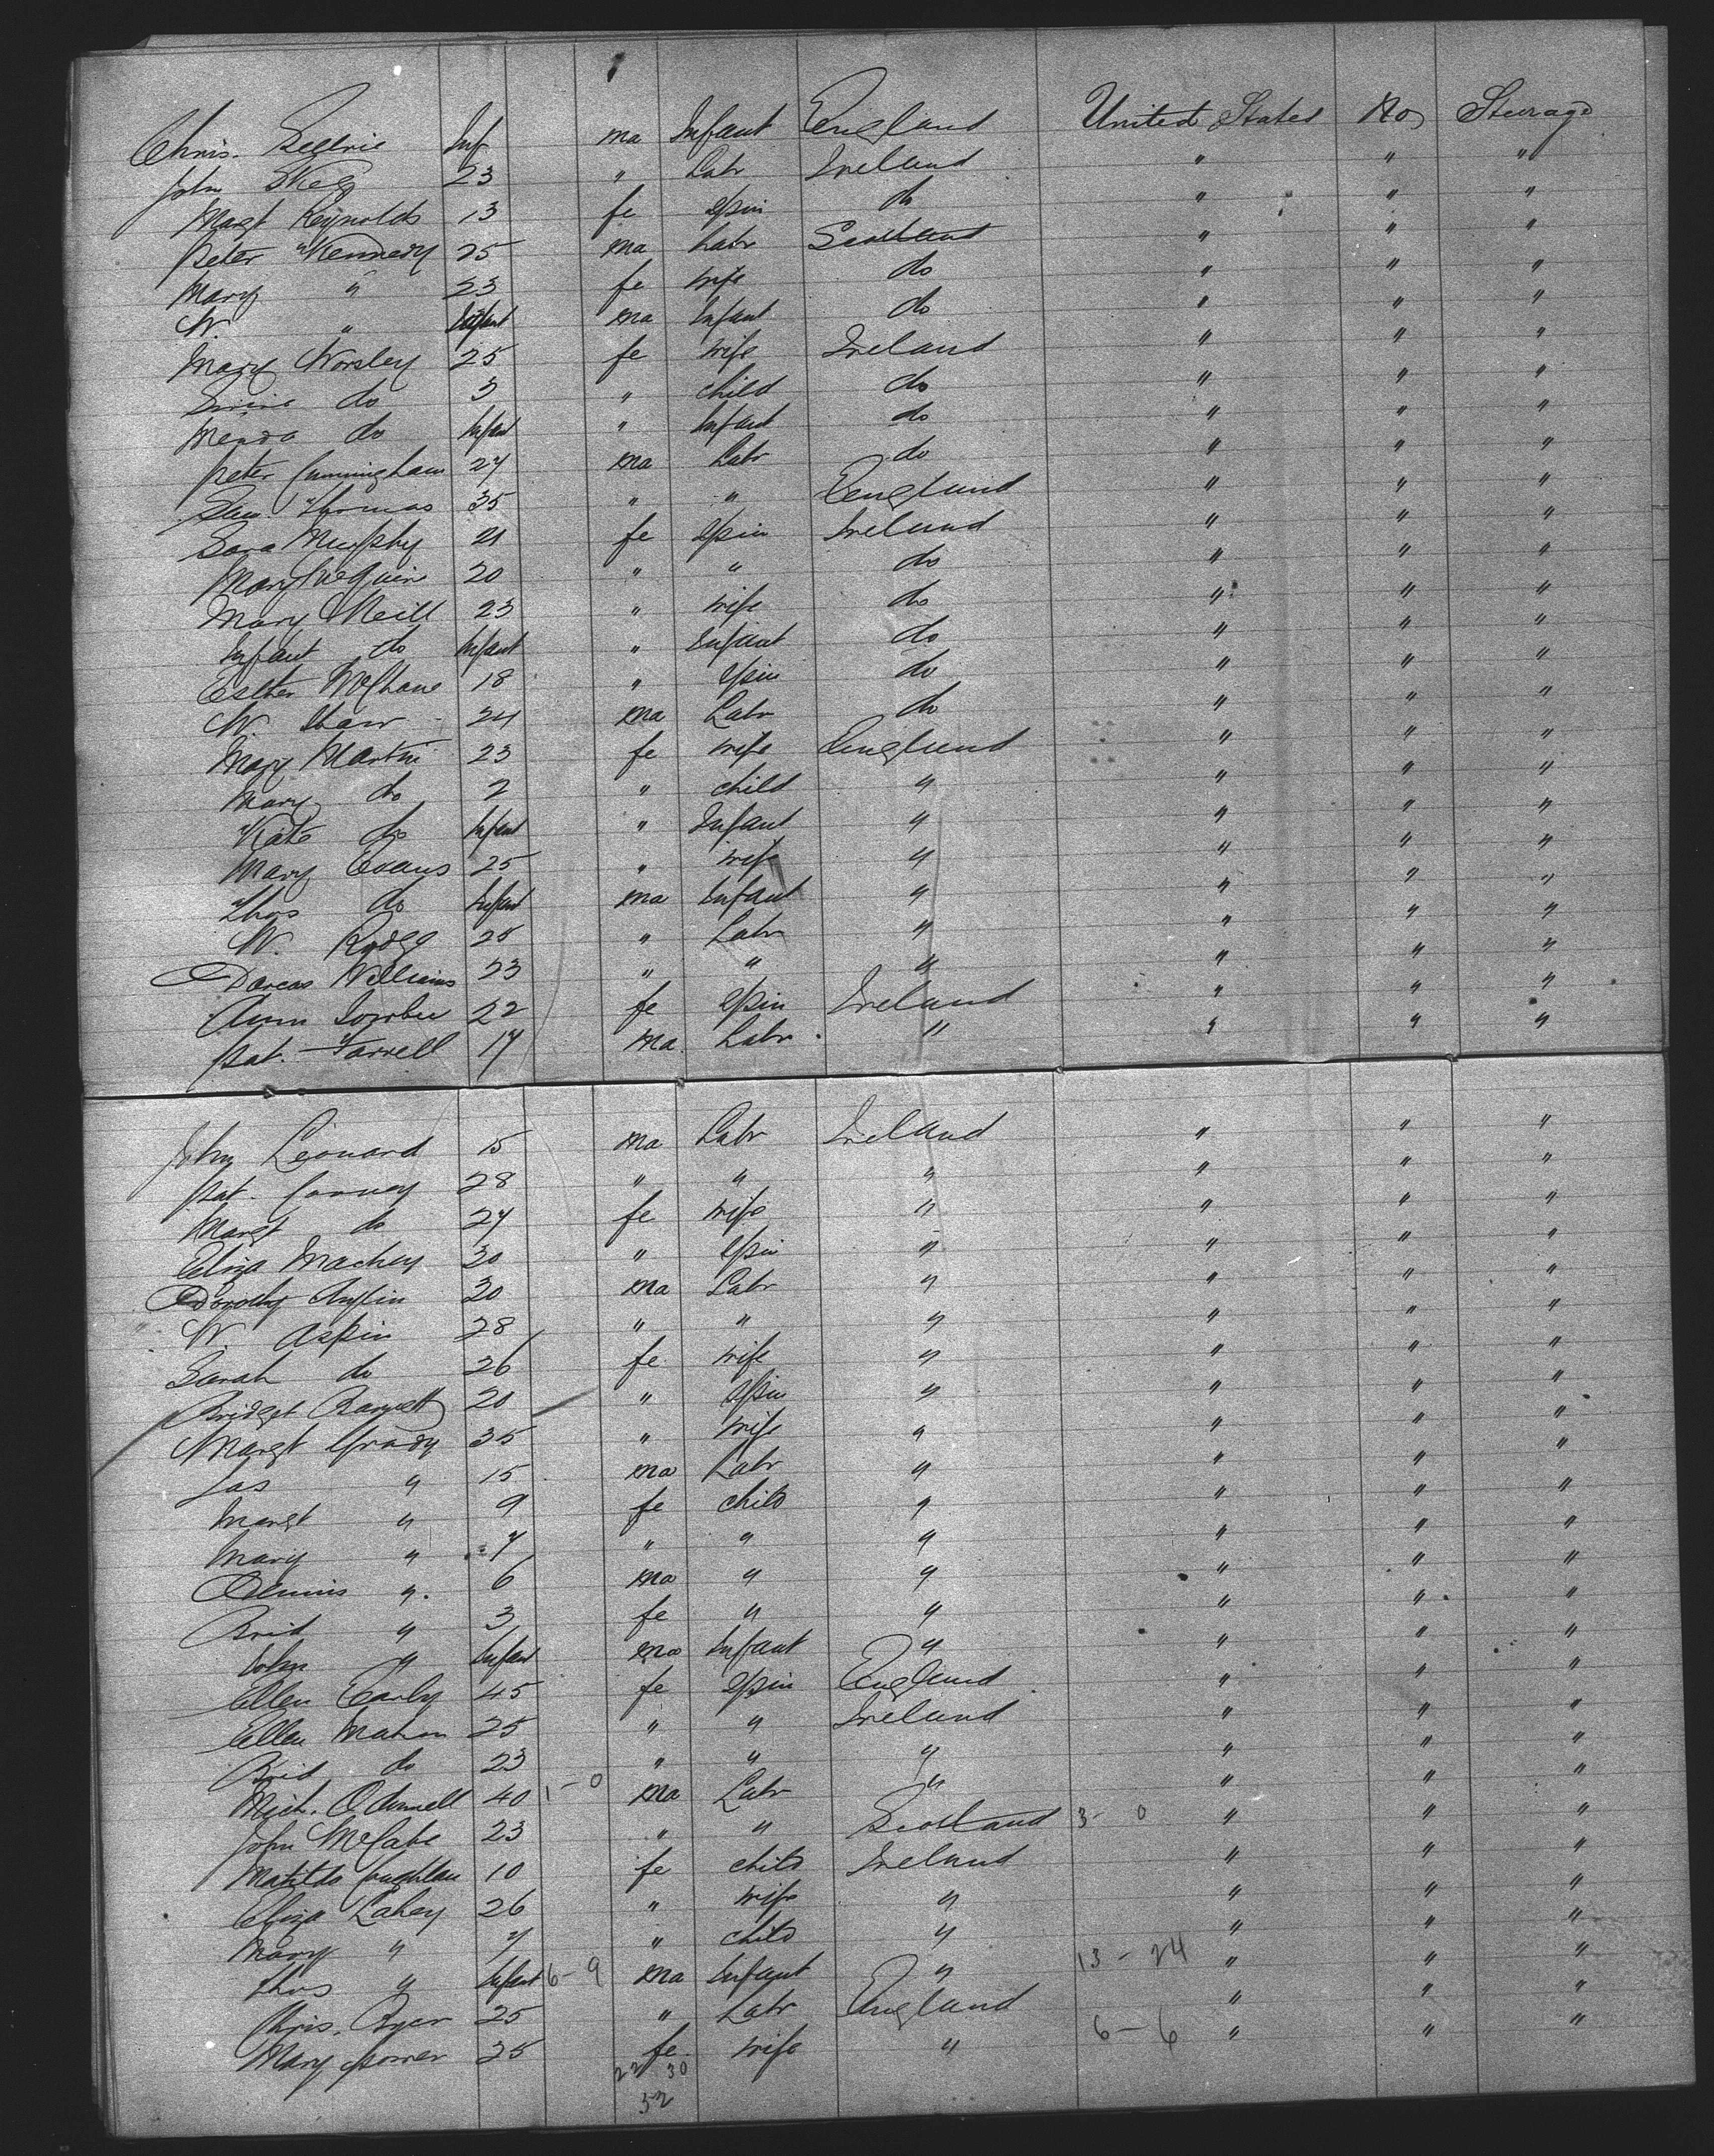 Chris. Inf ma Infant England United States No Steerage
John 23 " Labr Ireland " " "
Margt Reynolds 13 fe Spin do " " "
Peter Kennedy 25 ma Labr Scotland " " "
Mary " 23 fe wife do " " "
W. " Infant ma Infant do " " "
Mary Worsley 25 fe wife Ireland " " "
do 3 " child do " " "
do Infant " Infant do " " "
Peter Cunningham 27 ma Labr do " " "
Sam. Thomas 35 " " England " " "
Sara Murphy 21 fe Spin Ireland " " "
Mary McGuire 20 " " do " " "
Mary Neill 23 " wife do " " "
Infant do Infant " Infant do " " "
Esther McShane 18 " Spin do " " "
W. Shaw 24 ma Labr do " " "
Mary Martin 23 fe wife England " " "
Mary do 2 " child " " " "
Kate do Infant " Infant " " " "
Mary Evans 25 " wife " " " "
Thos do Infant ma Infant " " " "
W. 25 " Labr " " " "
Dorcas Williams 23 " " " " " "
Ann 22 fe Spin Ireland " " "
Pat. Farrell 17 ma Labr. " " " "
John Leonard 15 ma Labr Ireland " " "
Pat. 28 " " " " " "
Margt do 27 fe wife " " " "
Eliza Mackey 30 " Spin " " " "
Dorothy 20 ma Labr " " " "
W. Aspin 28 " " " " " "
Sarah do 26 fe wife " " " "
Bridget Barnett 20 " Spin " " " "
Margt Grady 35 " wife " " " "
Jas " 15 ma Labr " " " "
Margt " 9 fe child " " " "
Mary " 7 " " " " " "
Dennis " 6 ma " " " " "
Brid " 3 fe " " " " "
John " Infant ma Infant " " " "
Ellen Early 45 fe Spin England " " "
Ellen Mahon 25 " " Ireland " " "
Brid do 23 " " " " " "
Mich. Odonnell 40 1-0 ma Labr " " " "
John McCabe 23 " " Scotland 3-0 " " "
Matilda Coughlan 10 fe child Ireland " " "
Eliza Lahey 26 " wife " " " "
Mary " 7 " child " " " "
Thos " Infant 6-9 ma Infant " 13-24 " " "
Chris. 25 " Labr England " " "
Mary 25 fe wife " 6-6 " " "
22 30
52